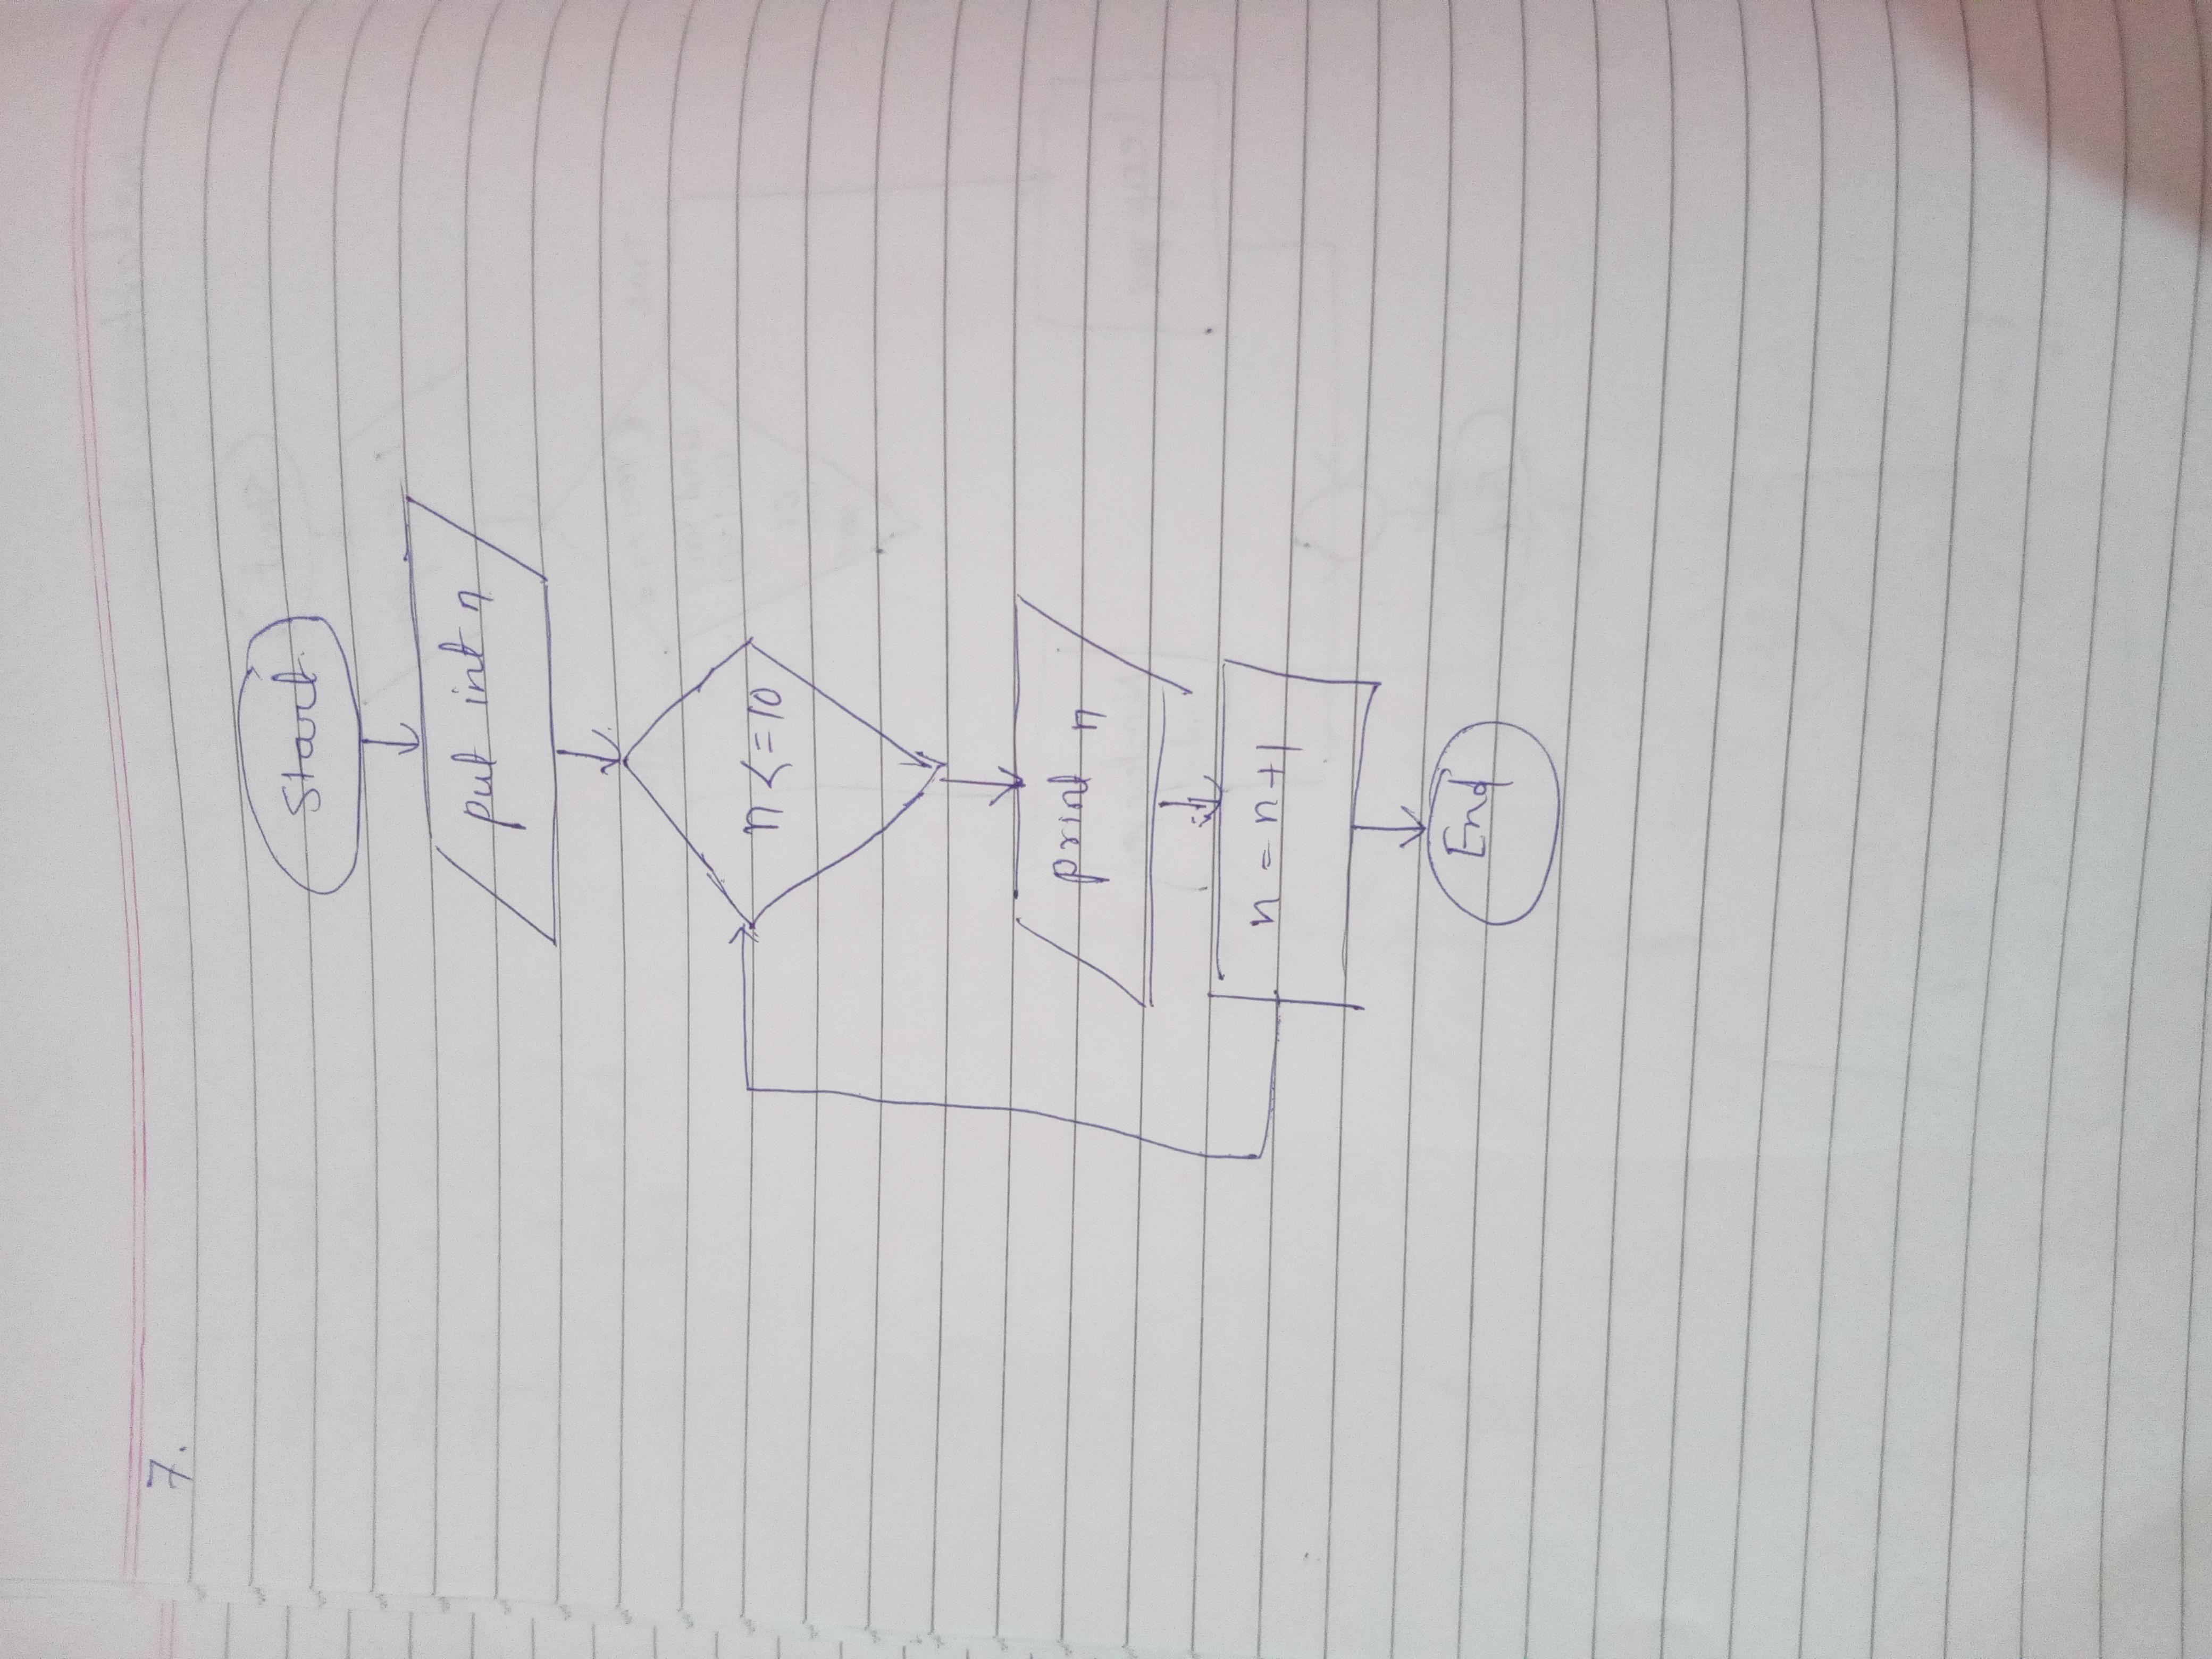 7.
Start
put int n
n <= 10
print n
n = n+1
End